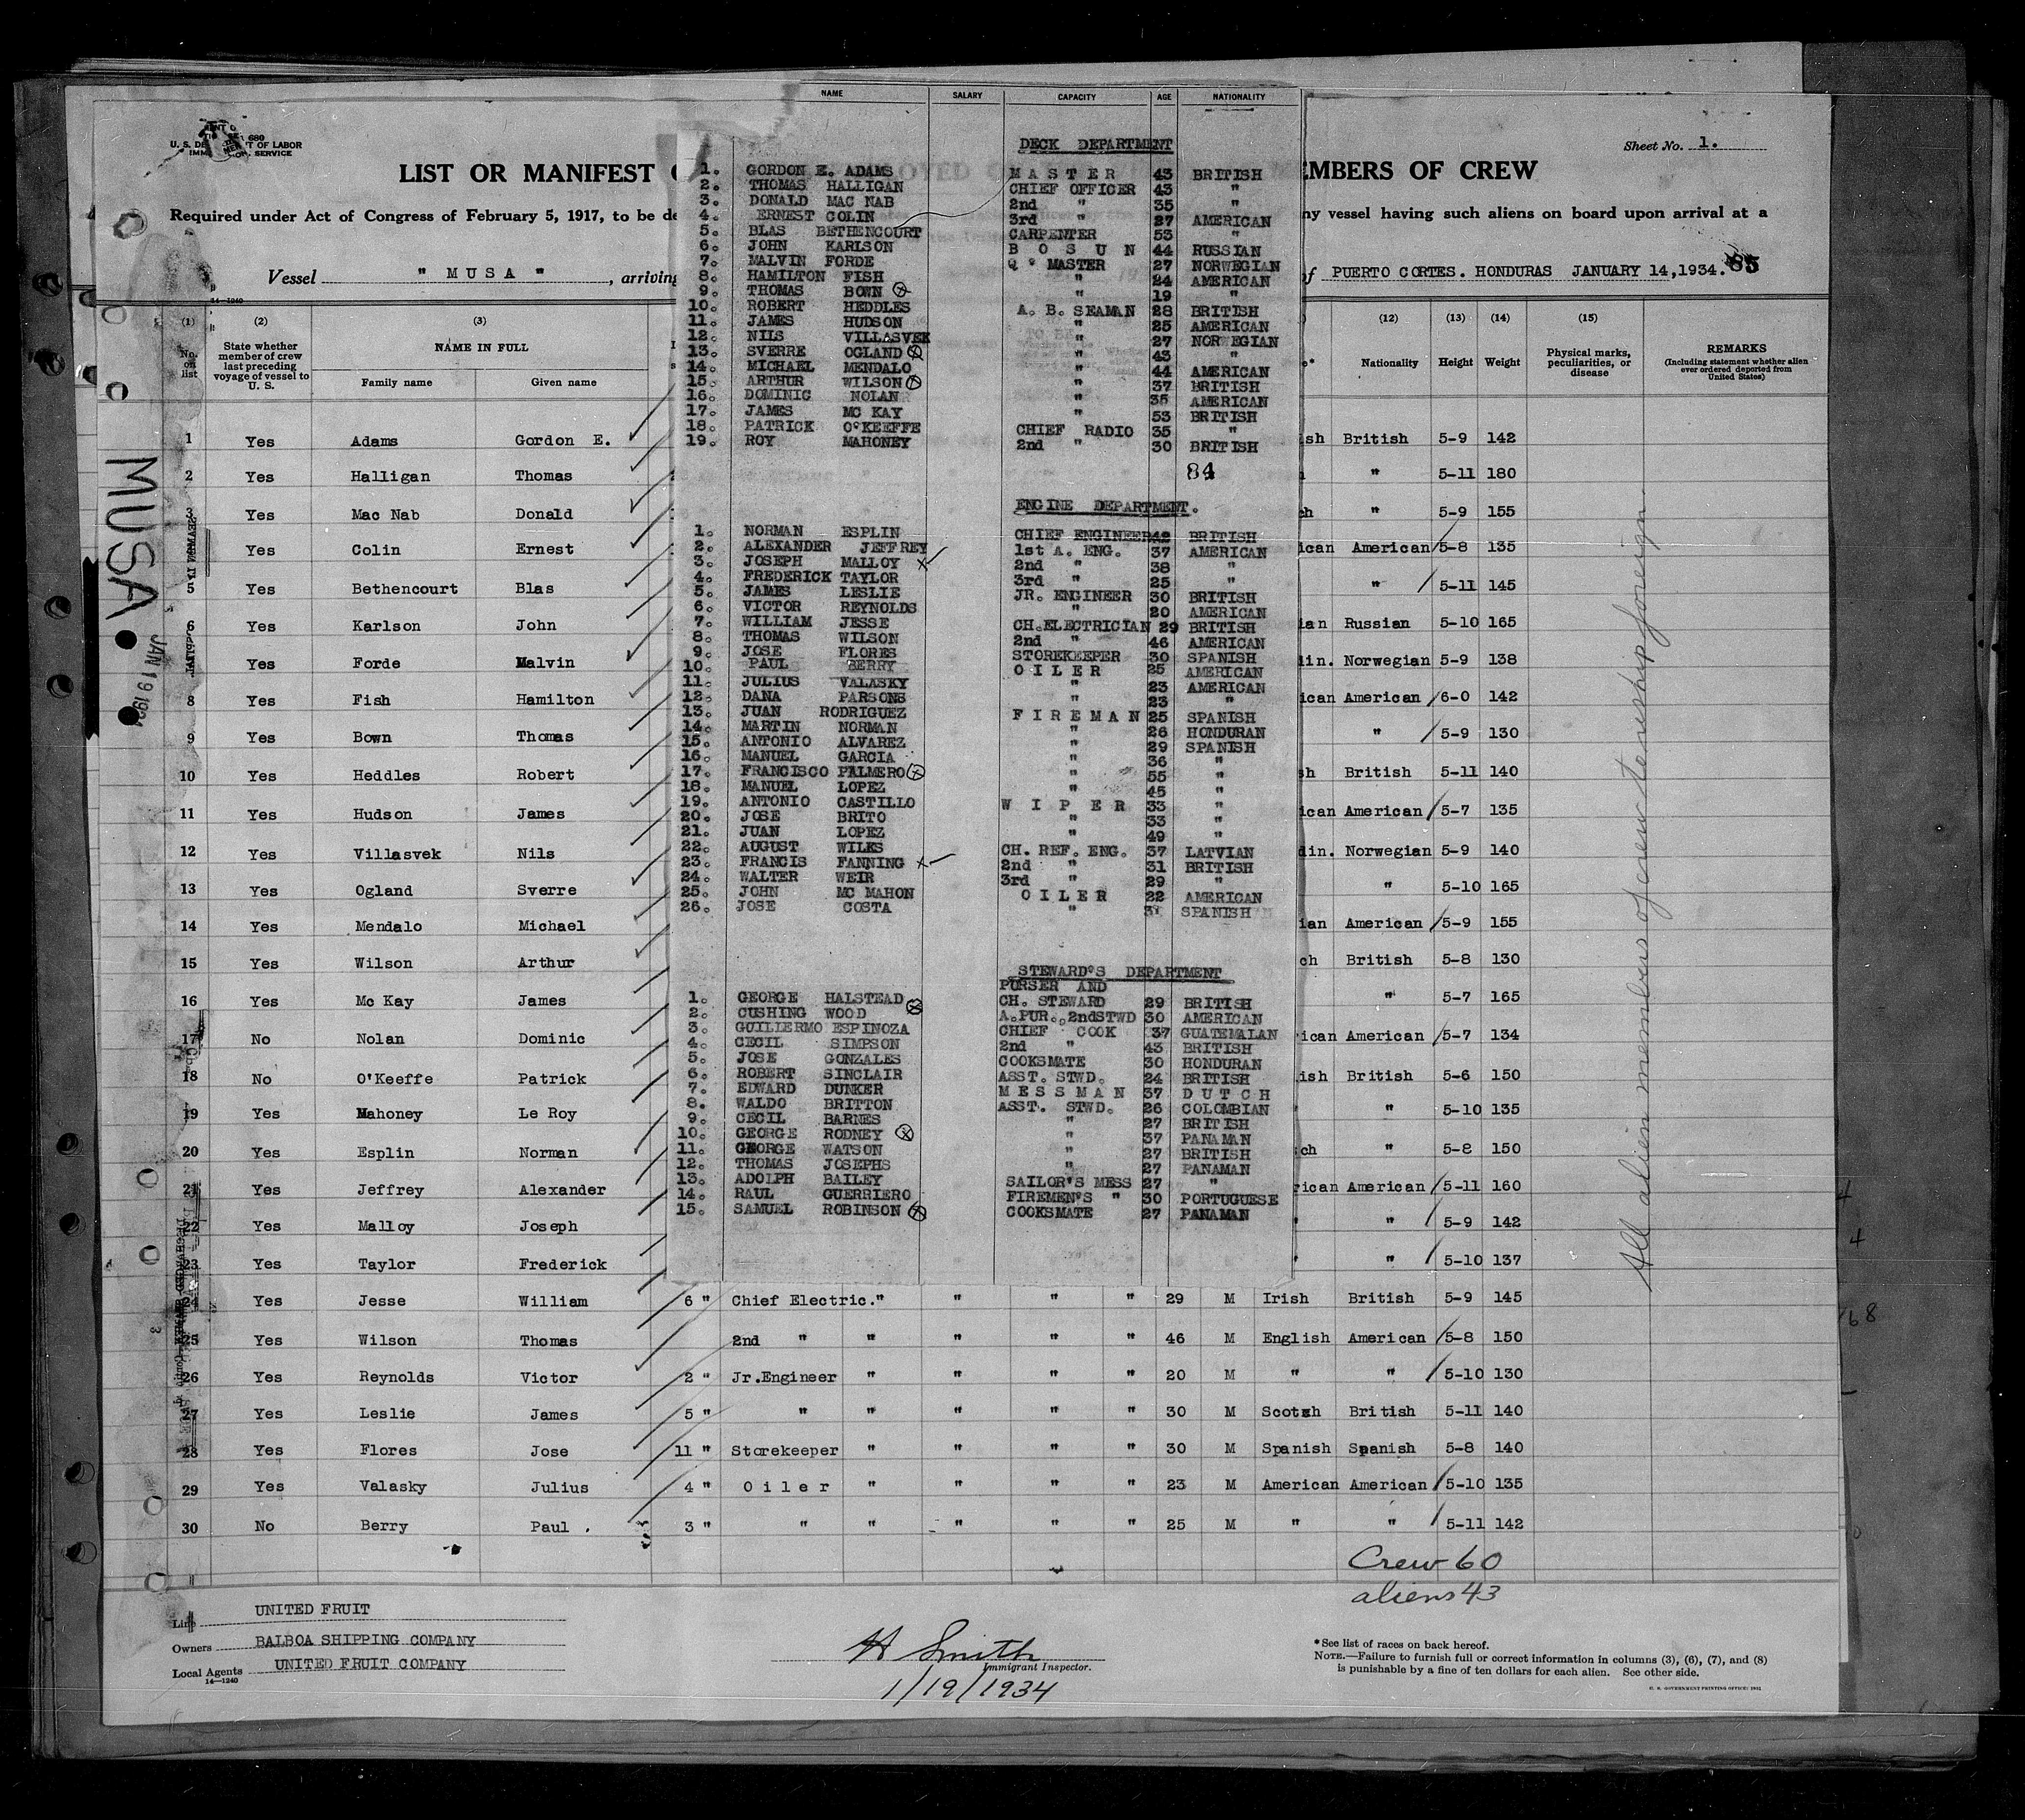 U. S. DEPARTMENT OF LABOR
IMMIGRATION SERVICE
LIST OR MANIFEST
MBERS OF CREW
Sheet No. 1.
Required under Act of Congress of February 5, 1917, to be de
ny vessel having such aliens on board upon arrival at a
Vessel " MUSA ", arriving
of PUERTO CORTES. HONDURAS JANUARY 14,1934. 85
14-1240
(1) (2) (3) (12) (13) (14) (15)
No. on list
State whether member of crew last preceding voyage of vessel to U. S.
NAME IN FULL
Family name Given name
Nationality Height Weight
Physical marks, peculiarities, or disease
REMARKS
(Including statement whether alien ever ordered deported from United States)
1 Yes Adams Gordon E. ish British 5-9 142
2 Yes Halligan Thomas " 5-11 180
3 Yes Mac Nab Donald ch " 5-9 155
Yes Colin Ernest ican American 5-8 135
5 Yes Bethencourt Blas " 5-11 145
6 Yes Karlson John ian Russian 5-10 165
Yes Forde Malvin din. Norwegian 5-9 138
8 Yes Fish Hamilton ican American 6-0 142
9 Yes Bown Thomas " 5-9 130
10 Yes Heddles Robert sh British 5-11 140
11 Yes Hudson James ican American 5-7 135
12 Yes Villasvek Nils din. Norwegian 5-9 140
13 Yes Ogland Sverre " 5-10 165
14 Yes Mendalo Michael ian American 5-9 155
15 Yes Wilson Arthur ch British 5-8 130
16 Yes Mc Kay James " 5-7 165
17 No Nolan Dominic ican American 5-7 134
18 No O'Keeffe Patrick ish British 5-6 150
19 Yes Mahoney Le Roy " 5-10 135
20 Yes Esplin Norman ch " 5-8 150
21 Yes Jeffrey Alexander rican American 5-11 160
22 Yes Malloy Joseph " 5-9 142
23 Yes Taylor Frederick " 5-10 137
24 Yes Jesse William 6 " Chief Electric." " " " 29 M Irish British 5-9 145
25 Yes Wilson Thomas 2nd " " " " " 46 M English American 5-8 150
26 Yes Reynolds Victor 2 " Jr.Engineer " " " " 20 M " " 5-10 130
27 Yes Leslie James 5 " " " " " " 30 M Scotch British 5-11 140
28 Yes Flores Jose 11 " Storekeeper " " " " 30 M Spanish Spanish 5-8 140
29 Yes Valasky Julius 4 " Oiler " " " " 23 M American American 5-10 135
30 No Berry Paul . 3 " " " " " " 25 M " " 5-11 142
All alien members of crew to reship foreign
MUSA
JAN 19 1934
Crew 60
aliens 43
Line UNITED FRUIT
Owners BALBOA SHIPPING COMPANY
Local Agents UNITED FRUIT COMPANY
14-1240
H Smith
Immigrant Inspector.
1/19/1934
*See list of races on back hereof.
NOTE.—Failure to furnish full or correct information in columns (3), (6), (7), and (8)
is punishable by a fine of ten dollars for each alien. See other side.
U. S. GOVERNMENT PRINTING OFFICE: 1931
NAME SALARY CAPACITY AGE NATIONALITY
DECK DEPARTMENT
1. GORDON E. ADAMS MASTER 43 BRITISH
2. THOMAS HALLIGAN CHIEF OFFICER 43 "
3. DONALD MAC NAB 2nd " 35 "
4. ERNEST COLIN 3rd " 27 AMERICAN
5. BLAS BETHENCOURT CARPENTER 53 "
6. JOHN KARLSON BOSUN 44 RUSSIAN
7. MALVIN FORDE Q " MASTER 27 NORWEGIAN
8. HAMILTON FISH " 24 AMERICAN
9. THOMAS BOWN " 19 "
10. ROBERT HEDDLES A. B. SEAMAN 28 BRITISH
11. JAMES HUDSON " 25 AMERICAN
12. NILS VILLASVEK " 27 NORWEGIAN
13. SVERRE OGLAND " 43 "
14. MICHAEL MENDALO " 44 AMERICAN
15. ARTHUR WILSON " 37 BRITISH
16. DOMINIC NOLAN " 35 AMERICAN
17. JAMES MC KAY " 53 BRITISH
18. PATRICK O'KEEFFE CHIEF RADIO 35 "
19. ROY MAHONEY 2nd " 30 BRITISH
84
ENGINE DEPARTMENT.
1. NORMAN ESPLIN CHIEF ENGINEER 42 BRITISH
2. ALEXANDER JEFFREY 1st A. ENG. 37 AMERICAN
3. JOSEPH MALLOY X 2nd " 38 "
4. FREDERICK TAYLOR 3rd " 25 "
5. JAMES LESLIE JR. ENGINEER 30 BRITISH
6. VICTOR REYNOLDS " 20 AMERICAN
7. WILLIAM JESSE CH.ELECTRICIAN 29 BRITISH
8. THOMAS WILSON 2nd " 46 AMERICAN
9. JOSE FLORES STOREKEEPER 30 SPANISH
10. PAUL BERRY OILER 25 AMERICAN
11. JULIUS VALASKY " 23 AMERICAN
12. DANA PARSONS " 23 "
13. JUAN RODRIGUEZ FIREMAN 25 SPANISH
14. MARTIN NORMAN " 26 HONDURAN
15. ANTONIO ALVAREZ " 29 SPANISH
16. MANUEL GARCIA " 36 "
17. FRANCISCO PALMERO " 55 "
18. MANUEL LOPEZ " 45 "
19. ANTONIO CASTILLO WIPER 33 "
20. JOSE BRITO " 33 "
21. JUAN LOPEZ " 49 "
22. AUGUST WILKS CH. REF. ENG. 37 LATVIAN
23. FRANCIS FANNING X 2nd " 31 BRITISH
24. WALTER WEIR 3rd " 29 "
25. JOHN MC MAHON OILER 22 AMERICAN
26. JOSE COSTA " 31 SPANISH
STEWARD'S DEPARTMENT
PURSER AND
1. GEORGE HALSTEAD CH. STEWARD 29 BRITISH
2. CUSHING WOOD A.PUR., 2ndSTWD 30 AMERICAN
3. GUILLERMO ESPINOZA CHIEF COOK 37 GUATEMALAN
4. CECIL SIMPSON 2nd " 43 BRITISH
5. JOSE GONZALES COOKSMATE 30 HONDURAN
6. ROBERT SINCLAIR ASST. STWD. 24 BRITISH
7. EDWARD DUNKER MESSMAN 37 DUTCH
8. WALDO BRITTON ASST. STWD. 26 COLOMBIAN
9. CECIL BARNES " 27 BRITISH
10. GEORGE RODNEY " 37 PANAMAN
11. GEORGE WATSON " 27 BRITISH
12. THOMAS JOSEPHS " 27 PANAMAN
13. ADOLPH BAILEY SAILOR'S MESS 27 "
14. RAUL GUERRIERO FIREMEN'S " 30 PORTUGUESE
15. SAMUEL ROBINSON COOKSMATE 27 PANAMAN